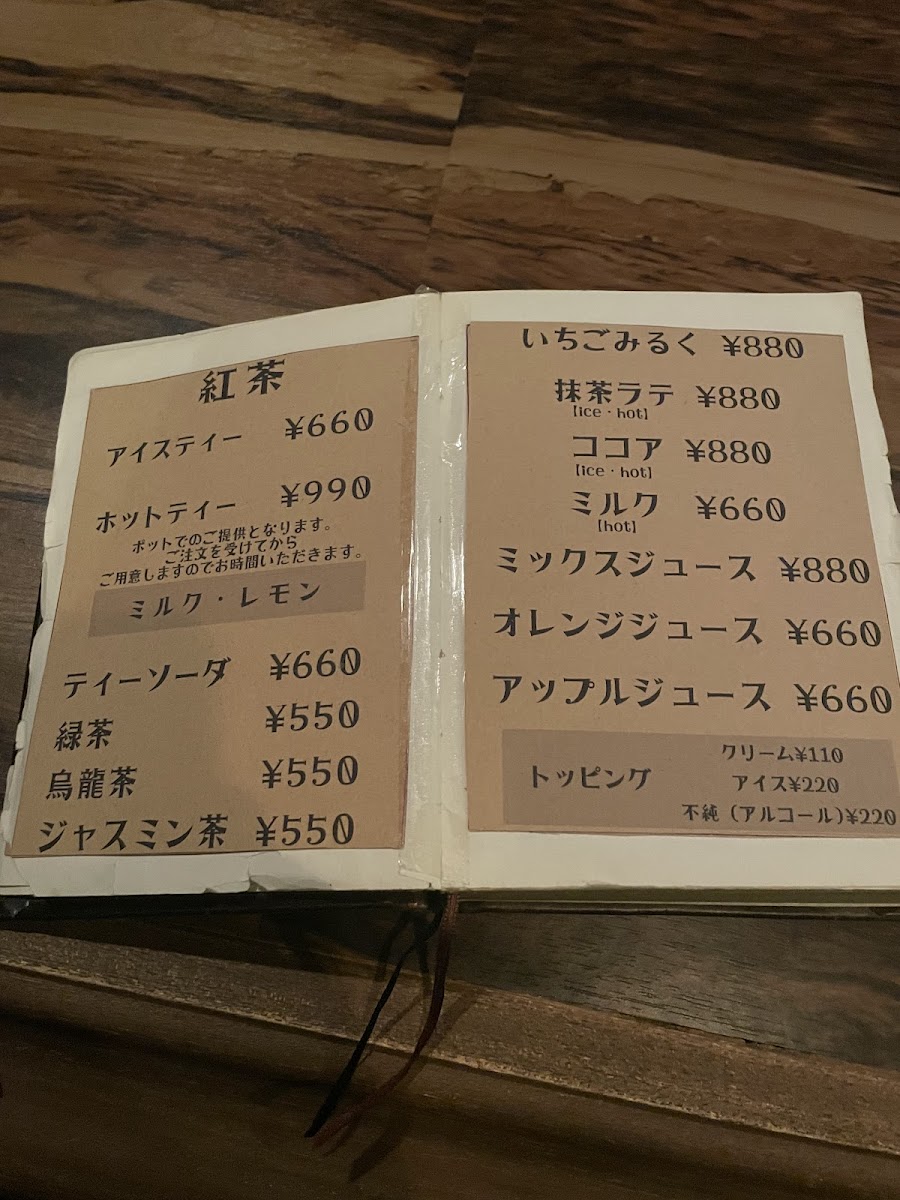 紅茶
アイスティー ¥660
ホットティー ¥990
ポットでのご提供となります。
ご注文を受けてから
ご用意しますのでお時間いただきます。
ミルク・レモン
ティーソーダ ¥660
緑茶 ¥550
烏龍茶 ¥550
ジャスミン茶 ¥550
いちごみるく ¥880
抹茶ラテ ¥880
【ice・hot】
ココア ¥880
【ice・hot】
ミルク ¥660
【hot】
ミックスジュース ¥880
オレンジジュース ¥660
アップルジュース ¥660
トッピング
クリーム¥110
アイス¥220
不純（アルコール）¥220